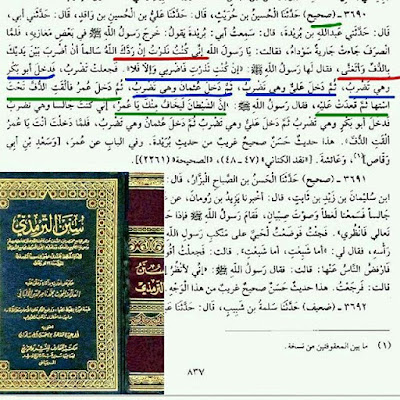 ٣٦٩٠ - (صحيح) حَدَّثَنَا الْحُسَيْنُ بن حُرَيْثٍ، قال: حَدَّثَنَا عَلِيُّ بن الْحُسَيْنِ بن وَاقِدٍ، قال: حَدَّ
قال: حَدَّثَنِي عَبدُالله بن بُرَيْدَةَ، قال: سَمِعْتُ أَبي؛ بُرَيْدَةَ يَقُولُ: خَرَجَ رَسُولُ اللهِ ﷺ في بَعْضِ مَغَازِيهِ، فَلَمَّا
انْصَرَفَ جَاءَتْ جَارِيَةٌ سَوْدَاءُ، فقالت: يَا رَسولَ اللهِ إِنِّي كُنْتُ نَذَرْتُ إِنْ رَدَّكَ اللهُ سَالِماً أَنْ أَضْرِبَ بَيْنَ يَدَيْكَ
بِالدُّفِّ وَأَتَغَنَّى، فقال لَهَا رَسُولُ اللهِ ﷺ: «إِنْ كُنْتِ نَذَرْتِ فَاضْرِبِي وَإِلَّا فَلا». فَجَعَلَتْ تَضْرِبُ، فَدَخَلَ أَبو بَكْرٍ
وهي تَضْرِبُ، ثُمَّ دَخَلَ عَلِيٌّ وهي تَضْرِبُ، ثُمَّ دَخَلَ عُثْمَانُ وهي تَضْرِبُ، ثُمَّ دَخَلَ عُمَرُ فَأَلْقَتِ الدُّفَّ تَحْتَ
اسْتِهَا ثُمَّ قَعَدَتْ عَلَيْهِ، فقال رَسُولُ اللهِ ﷺ: «إِنَّ الشَّيْطَانَ لَيَخَافُ مِنْكَ يَا عُمَرُ، إِنِّي كُنْتُ جَالِساً وهي تَضْرِبُ
فَدَخَلَ أَبو بَكْرٍ وهي تَضْرِبُ ثُمَّ دَخَلَ عَلِيٌّ وهي تَضْرِبُ ثُمَّ دَخَلَ عُثْمَانُ وهي تَضْرِبُ، فَلَمَّا دَخَلْتَ أَنْتَ يَا عُمَرُ
أَلْقَتِ الدُّفَّ». هذا حَدِيثٌ حَسَنٌ صحيحٌ غَرِيبٌ من حديثِ بُرَيْدَةَ. وفي البابِ عن عُمَرَ، [وَسَعْدِ بْنِ أَبِي
وَقَّاصٍ](١)، وَعَائِشَةَ. [«نقد الكتاني» (٤٧ - ٤٨)، «الصحيحة» (٢٢٦١)].
٣٦٩١ - (صحيح) حَدَّثَنَا الْحَسَنُ بن الصَّبَّاحِ الْبَزَّارُ، قال: أَخبرنا زَيْدُ بن
ابن سُلَيْمَانَ بن زَيْدِ بن ثَابِتٍ، قال: أخبرنا يَزِيدُ بن رُومَانَ، عن
جَالِساً فَسَمِعْنَا لَغَطاً وَصَوْتَ صِبْيَانٍ، فَقَامَ رَسُولُ اللهِ ﷺ فَإِذَا
تَعَالَي فَانْظُرِي». فَجِئْتُ فَوَضَعْتُ لَحْيَيَّ على مَنْكِبِ رَسُولِ
رَأْسِهِ، فقال لِي: «أَمَا شَبِعْتِ، أَمَا شَبِعْتِ». قالت: فَجَعَلْتُ
فَارْفَضَّ النَّاسُ عَنْهَا: قالت: فقال رَسُولُ اللهِ ﷺ: «إِنِّي لَأَنْظُرُ
قالت: فَرَجَعْتُ. هذا حديثٌ حَسَنٌ صحيحٌ غَرِيبٌ من هذا الْوَجْهِ
٣٦٩٢ - (ضعيف) حَدَّثَنَا سَلَمَةُ بن شَبِيبٍ، قال: حَدَّثَنَا
(١) ما بين المعقوفتين من نسخة.
٨٣٧
سُنَنُ التِّرْمِذِيّ
سُنَن
الترمذي